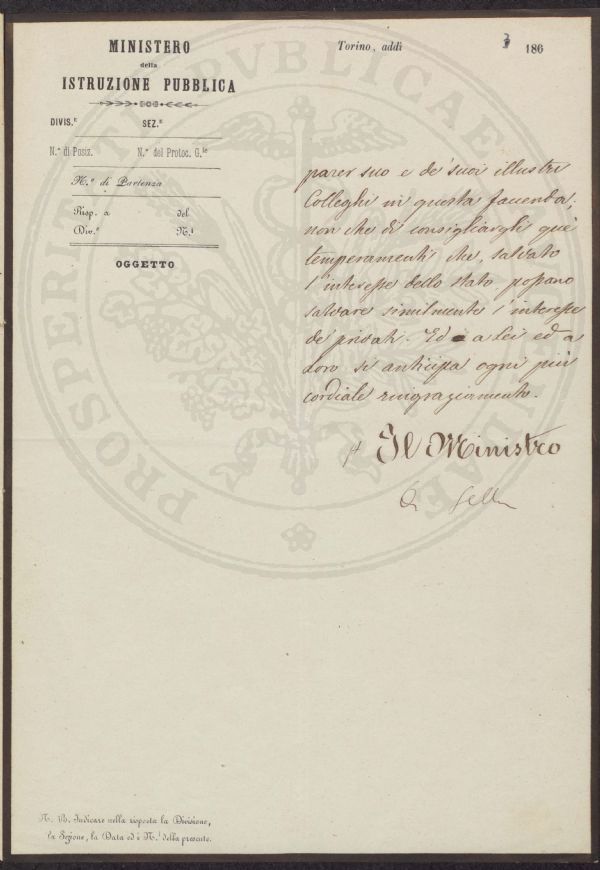 MINISTERO
della
ISTRUZIONE PUBBLICA
DIVIS.e SEZ.e
N.° di Posiz. N.° del Protoc. G.le
N.° di Partenza
Risp. a del
Div.e N.i
OGGETTO
Torino, addì 186
parer suo e de' suoi illustri
Colleghi in questa facenda;
non che di consigliargli que'
temperamenti che, salvato
l'interesse dello stato possano
salvare similmente l'interesse
de' privati. Ed a Lei ed a
Loro si anticipa ogni più
cordiale ringraziamento.
Il Ministro
N. B. Indicare nella risposta la Divisione,
la Sezione, la Data ed i N.i della presente.
PROSPERITATI PUBLICAE